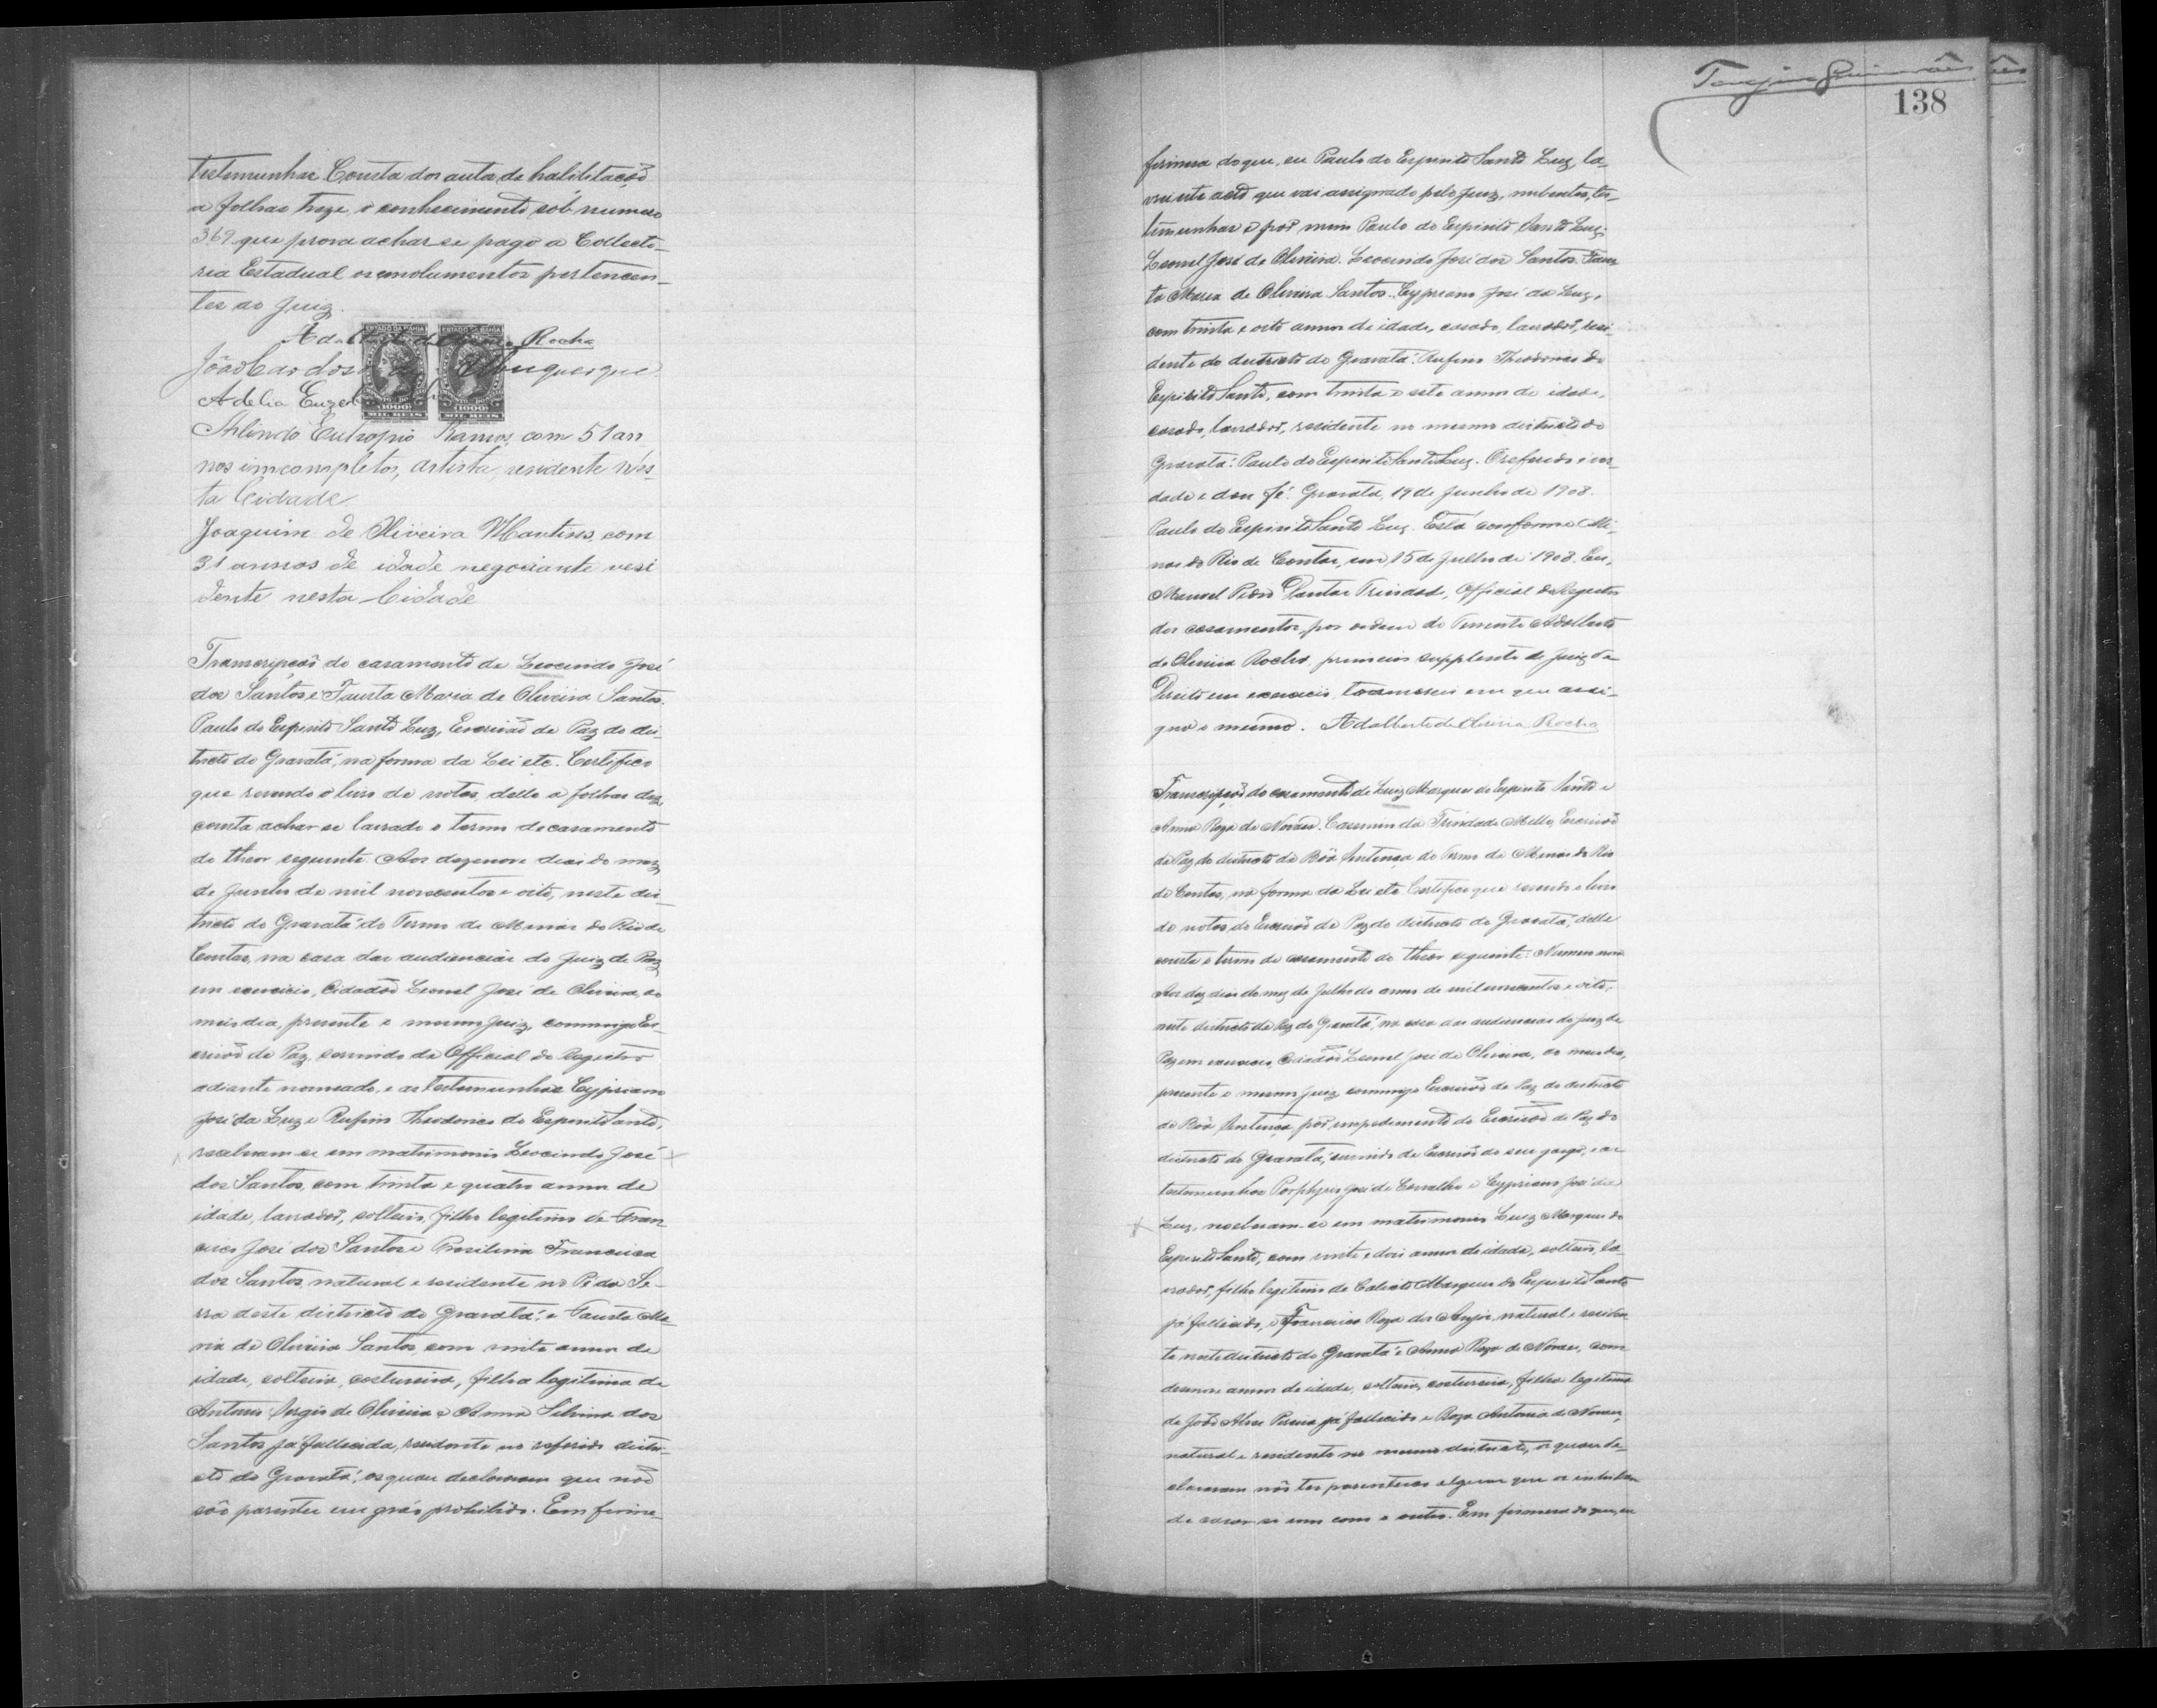 testemunhas. Consta dos autos de habilitação
a folhas treze, o conhecimento sob numero
369 que prova achar-se pago a Collecto-
ria Estadual os emolumentos pertencen-
tes ao Juiz.
Adalberto de Oliveira Rocha
ESTADO DA BAHIA ESTADO DA BAHIA
João Cardoso de Albuquerque
Adelia
(1000) (1000)
MIL REIS MIL REIS
Arlindo Eutropio Ramos, com 51 an
nos imcompletos, artista, residente n'es-
ta Cidade
Joaquim de Oliveira Martins, com
31 annos de idade negociante resi
dente nesta Cidade
Transcripção do casamento de Leocindo José
dos Santos e Fausta Maria de Oliveira Santos.
Paulo do Espirito Santo Luz, Escrivão de Paz do dis-
tricto do Gravatá, na forma da Lei etc. Certifico
que revendo o livro de notas, delle a folhas dez,
consta achar-se lavrado o termo de casamento
do theor seguinte: Aos dezenove dias do mez
de Junho de mil novecentos e oito, neste dis-
tricto do Gravatá do Termo de Minas do Rio de
Contas, na casa das audiencias do Juiz de Paz
em exercicio, Cidadão Leonel José de Oliveira, ao
meio dia, presente o mesmo Juiz, commigo Es-
crivão de Paz, servindo de Official do Registro
adiante nomeado, e as testemunhas Cypriano
José da Luz e Rufino Theodorico do Espirito Santo,
receberam-se em matrimonio Leocindo José
dos Santos, com trinta e quatro annos de
idade, lavrador, solteiro, filho legitimo de Fran-
cisco José dos Santos e Brasilina Francisca
dos Santos, natural e residente no Pé da Se-
rra deste districto do Gravatá; e Fausta Ma-
ria de Oliveira Santos, com vinte annos de
idade, solteira, costureira, filha legitima de
Antonio Sergio de Oliveira e Anna Silvina dos
Santos já fallecida, residente no referido distri-
cto do Gravatá; os quaes declararam que não
são parentes em gráo prohibido. Em firme-
138
firmesa do que, eu Paulo do Espirito Santo Luz, la-
vrei este acto que vai assignado pelo Juiz, nubentes, tes-
temunhas e por mim Paulo do Espirito Santo Luz.
Leonel José de Oliveira. Leocindo José dos Santos. Faus
ta Maria de Oliveira Santos. Cypriano José da Luz,
com trinta e oito annos de idade, casado, lavrador, resi-
dente do districto do Gravatá. Rufino Theodorico do
Espirito Santo, com trinta e sete annos de idade,
casado, lavrador, residente no mesmo districto do
Gravatá. Paulo do Espirito Santo Luz. O referido é ver-
dade e dou fé. Gravatá, 19 de Junho de 1908.
Paulo do Espirito Santo Luz. Está conforme. Mi-
nas do Rio de Contas, em 15 de Julho de 1908. Eu,
Manoel Pedro Dantas Trindade, Official do Registro
dos casamentos, por ordem do Tenente Adalberto
de Oliveira Rocha, primeiro supplente do Juiz de
Direito em exercicio, transcrevi em que assi-
gna o mesmo. Adalberto de Oliveira Rocha
Transcripção do casamento de Luiz Marques do Espirito Santo e
Anna Roza de Novaes. Casemiro da Trindade Mello, Escrivão
de Paz do districto da Bôa Sentença do Termo de Minas do Rio
de Contas, na forma da Lei etc. Certifico que revendo o livro
de notas do Escrivão de Paz do districto do Gravatá, delle
consta o termo de casamento do theor seguinte: Numero nove
Aos dez dias do mez de Julho do anno de mil novecentos e oito,
neste districto de Paz do Gravatá, na casa das audiencias do Juiz de
Paz em exercicio, Cidadão Leonel José de Oliveira, ao meio dia,
presente o mesmo Juiz commigo Escrivão de Paz do districto
da Bôa Sentença por impedimento do Escrivão de Paz do
districto do Gravatá, servindo de Escrivão do seu cargo, e as
testemunhas Porphyrio José de Carvalho e Cypriano José da
Luz, receberam-se em matrimonio Luiz Marques do
Espirito Santo, com vinte e dois annos de idade, solteiro, la-
vrador, filho legitimo de Calixto Marques do Espirito Santo
já fallecido, e Francisca Roza dos Anjos, natural e residen
te neste districto do Gravatá e Anna Roza de Novaes, com
desenove annos de idade, solteira, costureira, filha legitima
de João Alves Pereira já fallecido e Roza Antonia de Novaes,
natural e residente no mesmo districto, os quaes de-
clararam não ter parentesco algum que os
de casar-se um com o outro. Em firmesa do que, eu